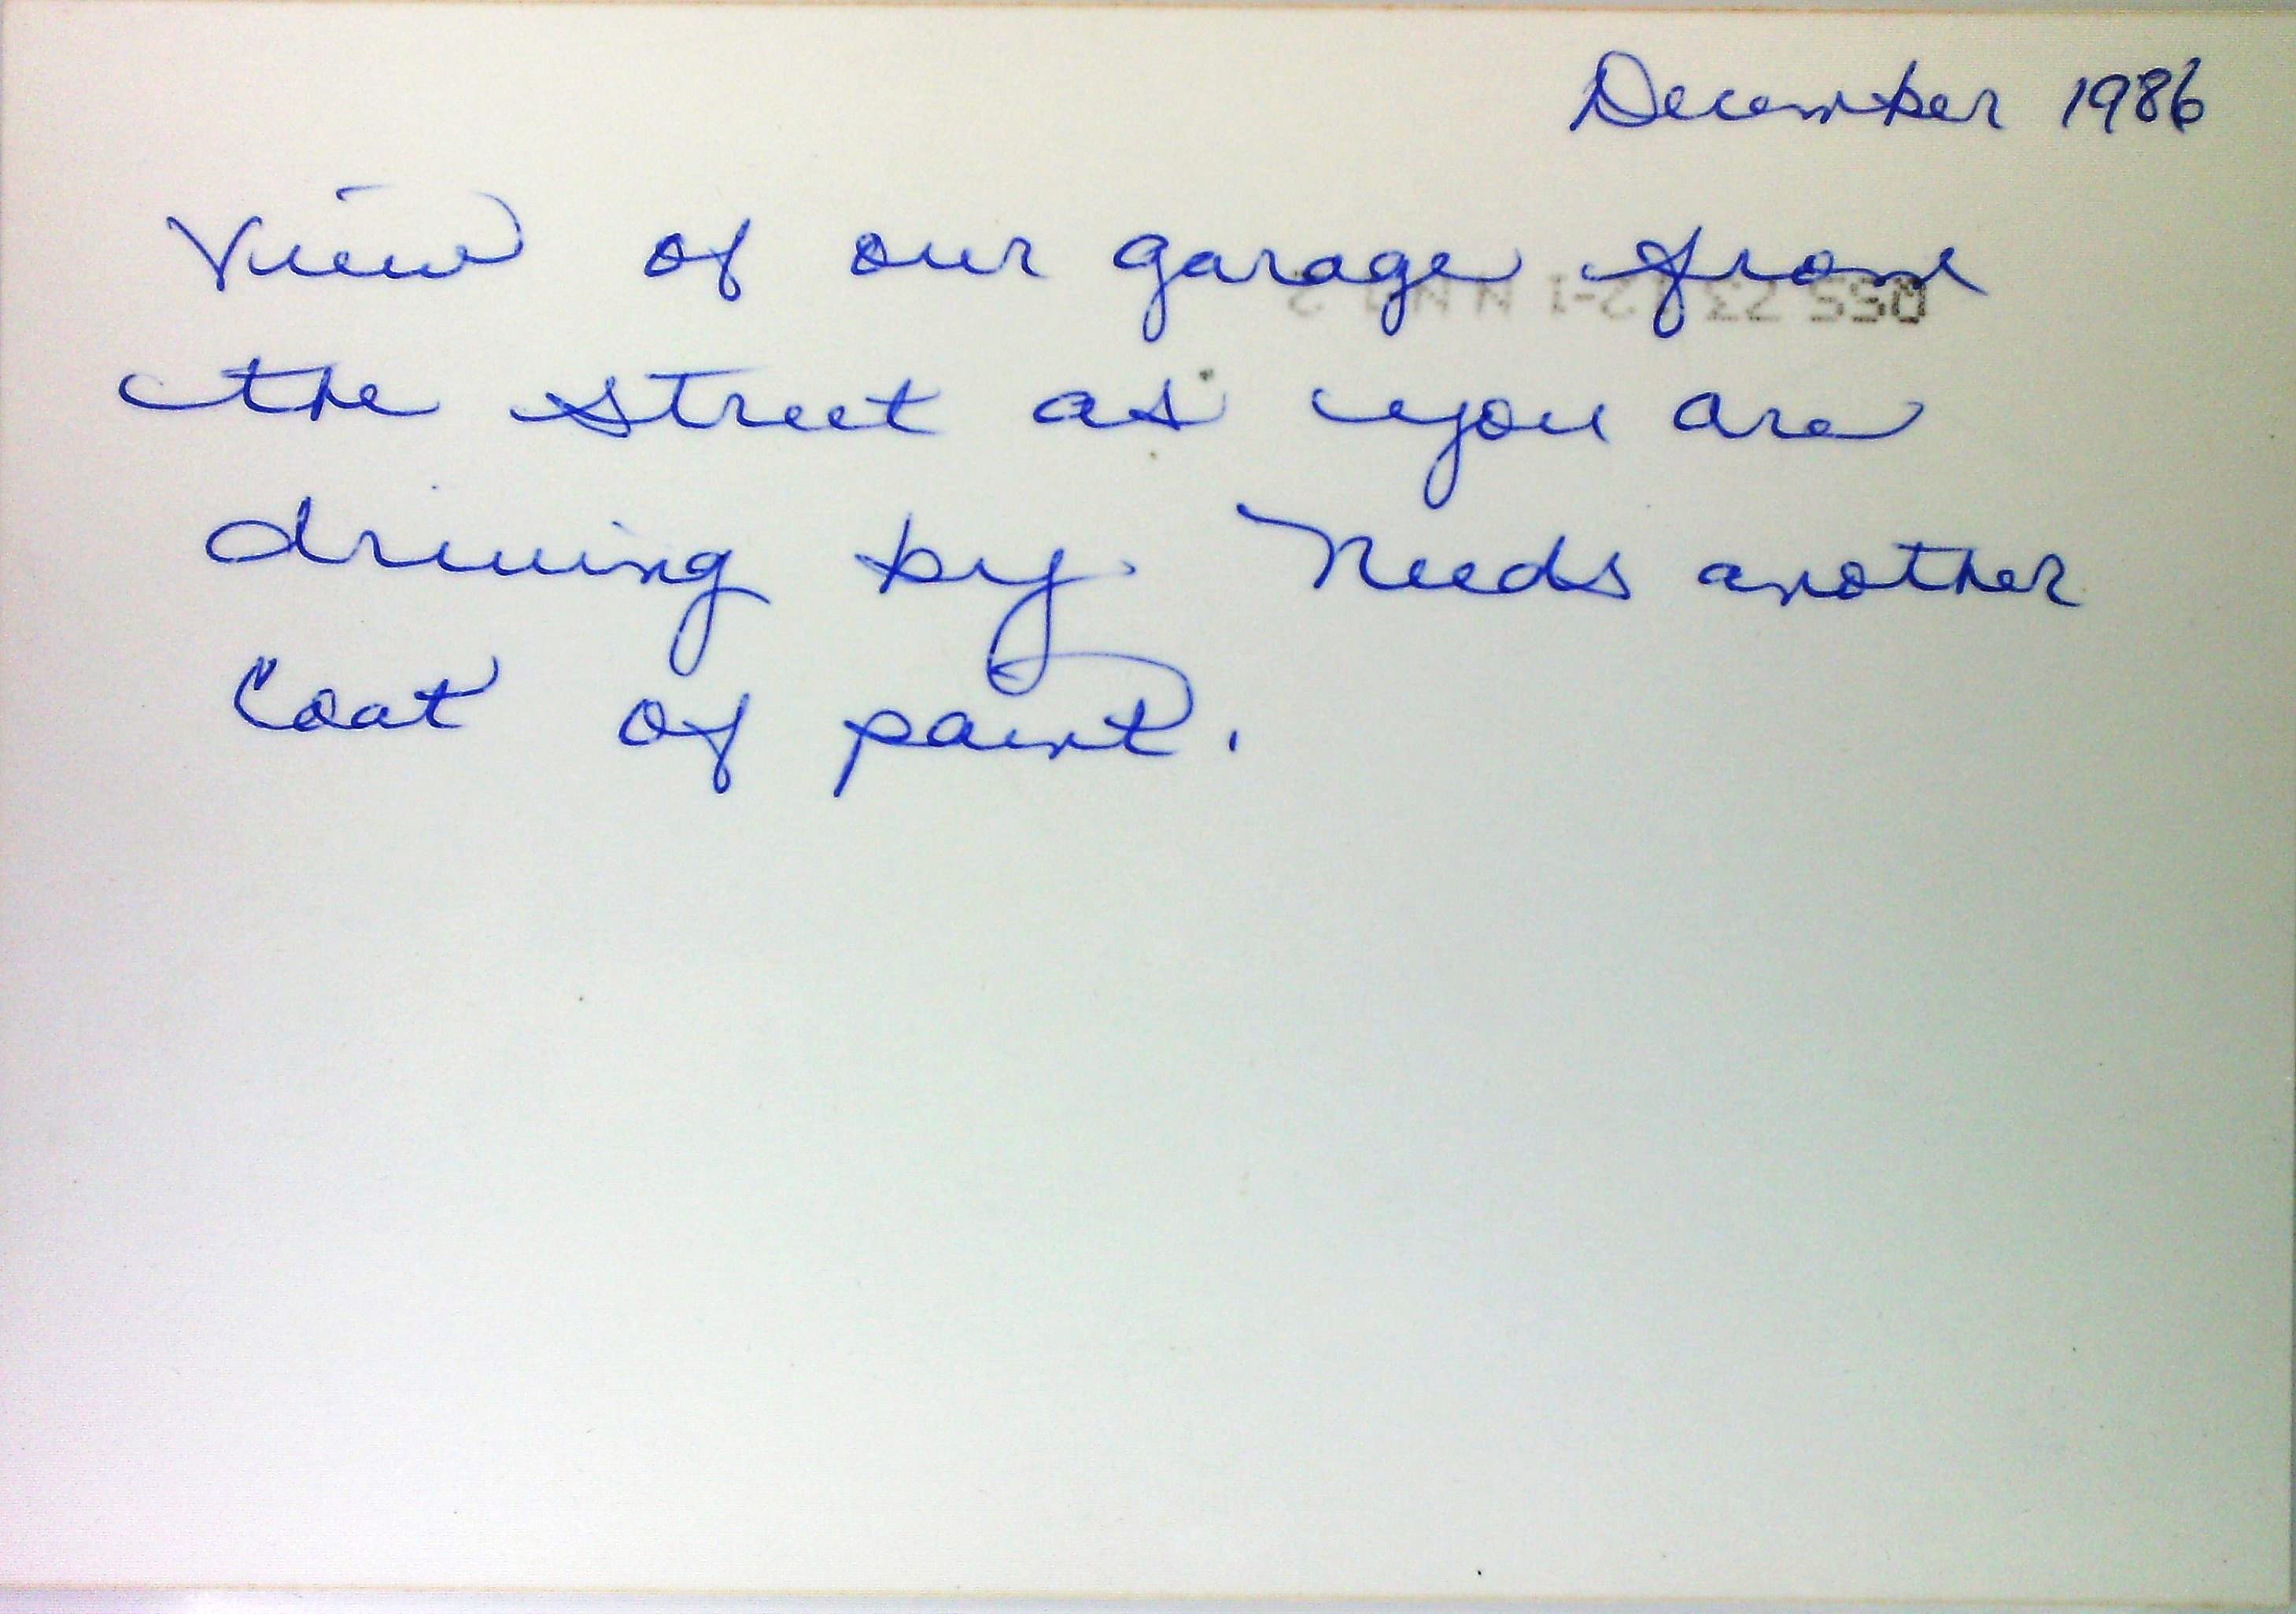 December 1986
View of our garage from
the street as you are
driving by. Needs another
Coat of paint.